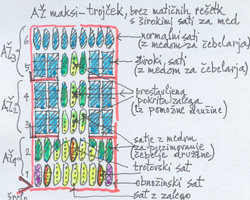 AŽ maksi-trojček, brez matičnih rešetk
s širokimi sati za med
normalni sati
(z medom za čebelarja)
široki sati
(z medom za čebelarja)
prestavljena
pokrita zalega
(iz pomožne družine)
satje z medom
za prezimovanje
(čebelje družine)
trotovski sat
obnožinski sat
sat z zalego
AŽ3
AŽ2
AŽ1
6
5
4
3
2
1